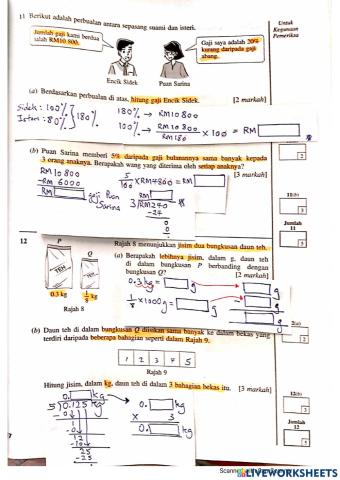 11 Berikut adalah perbualan antara sepasang suami dan isteri.
Untuk
Kegunaan
Pemeriksa
Jumlah gaji kami berdua
ialah RM10 800.
Gaji saya adalah 20%
kurang daripada gaji
abang.
Encik Sidek
Puan Sarina
(a) Berdasarkan perbualan di atas, hitung gaji Encik Sidek.
[2 markah]
Sidek : 100%
Isteri : 80%
} 180%
180% → RM10800
100% → RM10800
RM180
x 100 = RM
2
(b) Puan Sarina memberi 5% daripada gaji bulanannya sama banyak kepada
3 orang anaknya. Berapakah wang yang diterima oleh setiap anaknya?
[3 markah]
RM10800
- RM6000
RM
gaji Puan
Sarina
5
100
x RM4800 = RM
RM
3 RM240
-24
0
0
11(b)
3
Jumlah
11
5
12
Rajah 8 menunjukkan jisim dua bungkusan daun teh.
P
Q
TEH
TEH
0.3 kg
1/8 kg
Rajah 8
(a) Berapakah lebihnya jisim, dalam g, daun teh
di dalam bungkusan P berbanding dengan
bungkusan Q?
[2 markah]
0.3kg = g
1/8 x 1000g = g
g
g
g
2
(b) Daun teh di dalam bungkusan Q diisikan sama banyak ke dalam bekas yang
terdiri daripada beberapa bahagian seperti dalam Rajah 9.
1 2 3 4 5
Rajah 9
Hitung jisim, dalam kg, daun teh di dalam 3 bahagian bekas itu.
[3 markah]
0. kg
5 0.125 kg
-0
1
-0
12
-10
25
-25
0.
x 3
0. kg
12(b)
3
Jumlah
12
5
LIVEWORKSHEETS